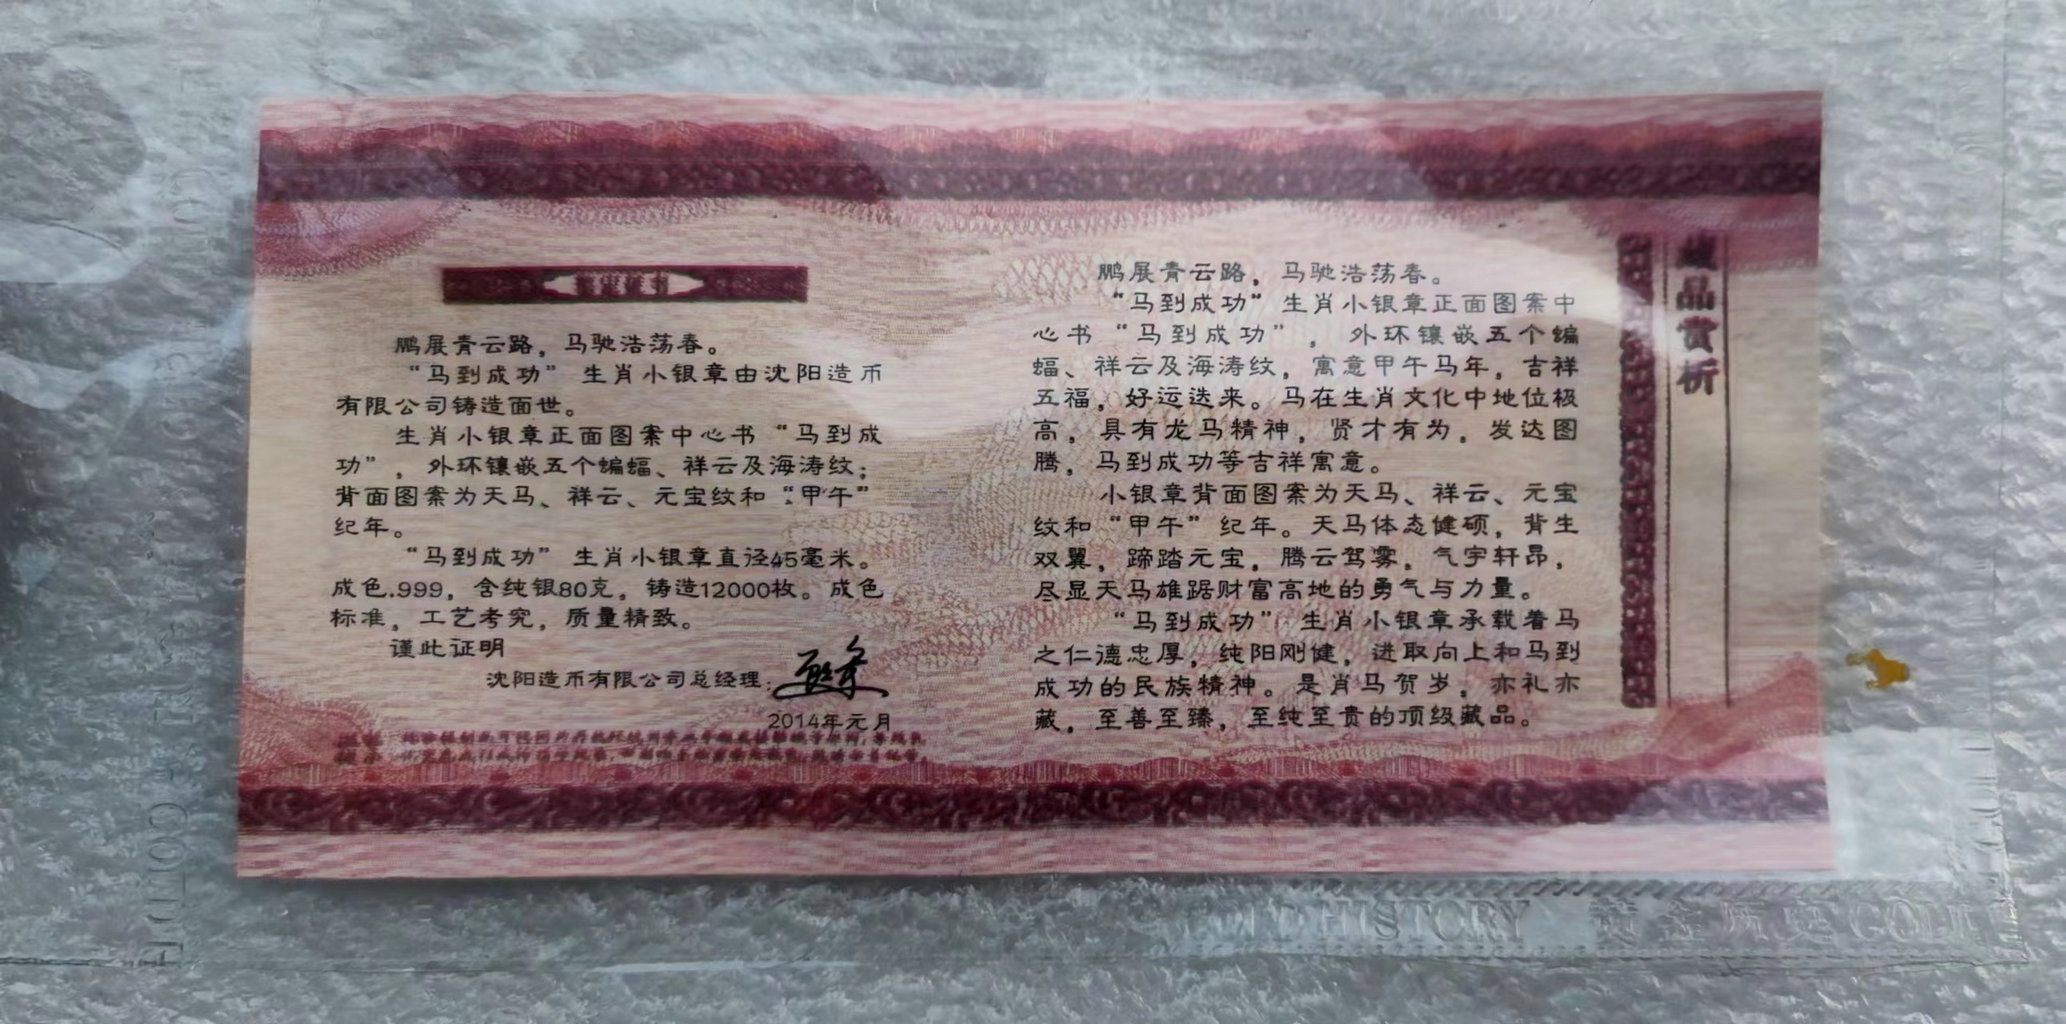 鹏展青云路，马驰浩荡春。
“马到成功” 生肖小银章由沈阳造币
有限公司铸造面世。
生肖小银章正面图案中心书“马到成
功”，外环镶嵌五个蝙蝠、祥云及海涛纹；
背面图案为天马、祥云、元宝纹和“甲午”
纪年。
“马到成功” 生肖小银章直径45毫米。
成色.999，含纯银80克，铸造12000枚。成色
标准，工艺考究，质量精致。
谨此证明
沈阳造币有限公司总经理：
2014年元月
藏品赏析
鹏展青云路，马驰浩荡春。
“马到成功” 生肖小银章正面图案中
心书“马到成功”，外环镶嵌五个蝙
蝠、祥云及海涛纹，寓意甲午马年，吉祥
五福，好运迭来。马在生肖文化中地位极
高，具有龙马精神，贤才有为，发达图
腾，马到成功等吉祥寓意。
小银章背面图案为天马、祥云、元宝
纹和“甲午”纪年。天马体态健硕，背生
双翼，蹄踏元宝，腾云驾雾，气宇轩昂，
尽显天马雄踞财富高地的勇气与力量。
“马到成功” 生肖小银章承载着马
之仁德忠厚，纯阳刚健，进取向上和马到
成功的民族精神。是肖马贺岁，亦礼亦
藏，至善至臻，至纯至贵的顶级藏品。
GOLD HISTORY